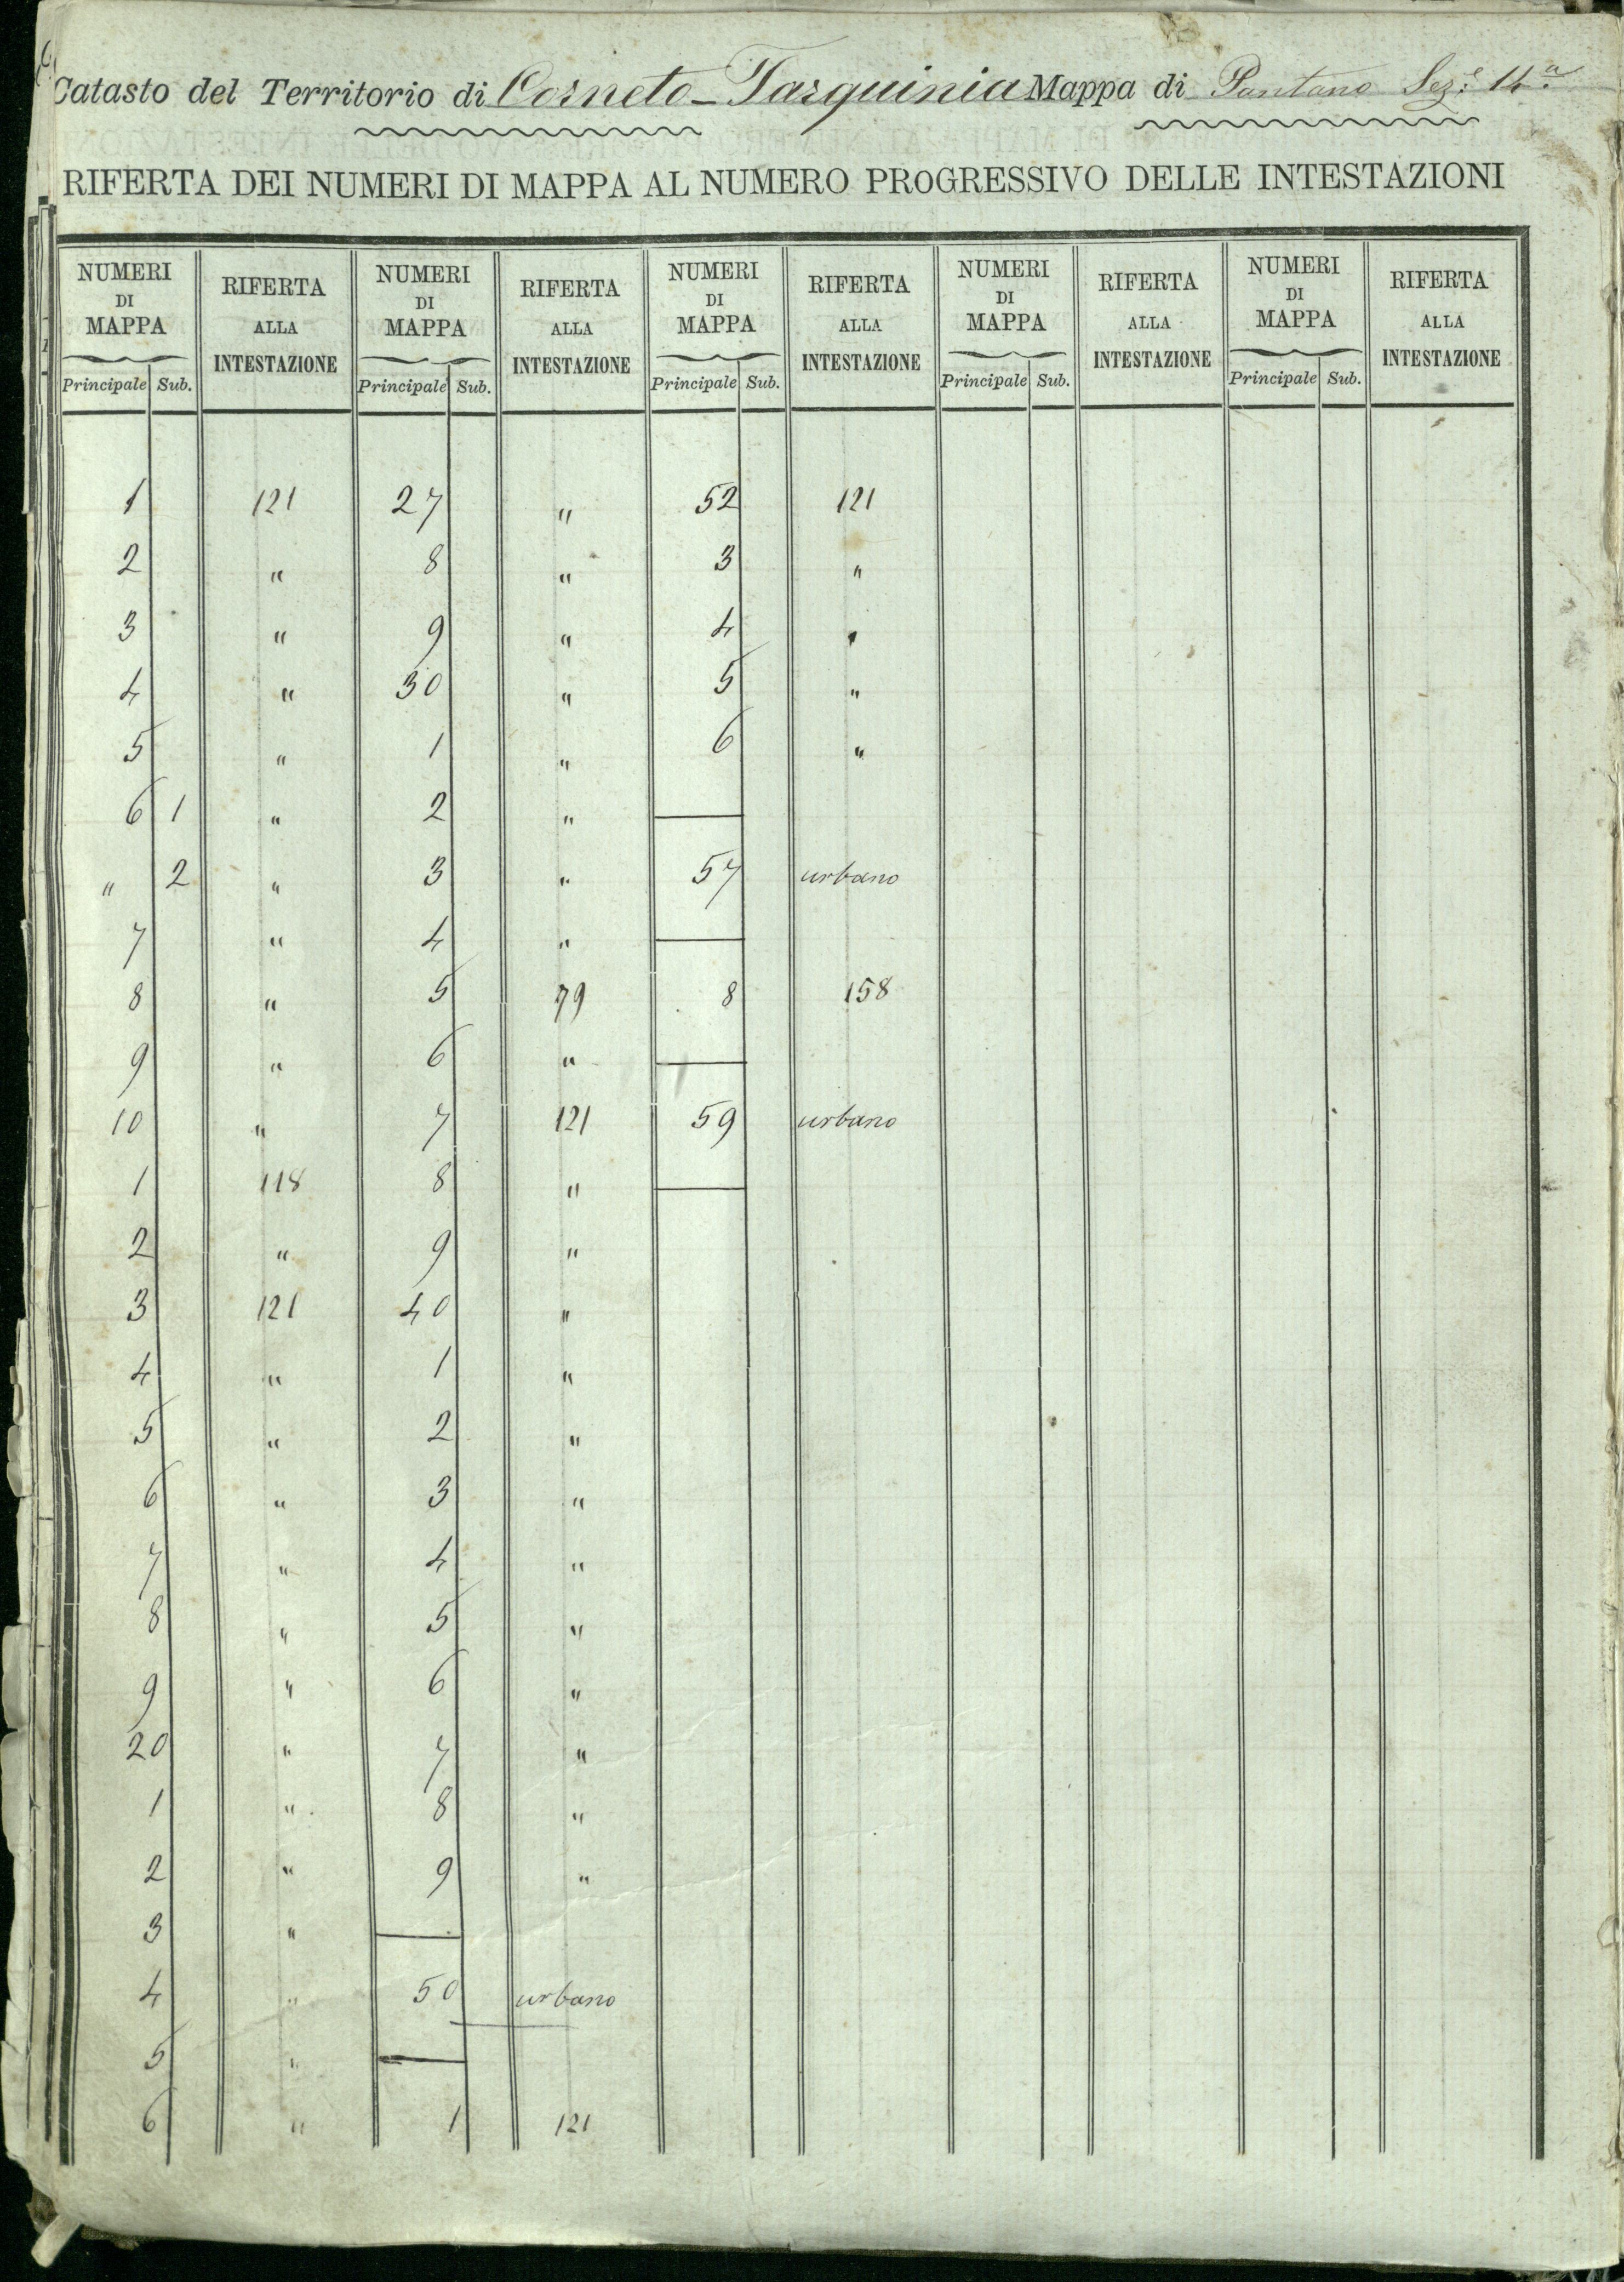 Catasto del Territorio di Corneto-Tarquinia Mappa di Pantano Sez.e 14.a
RIFERTA DEI NUMERI DI MAPPA AL NUMERO PROGRESSIVO DELLE INTESTAZIONI
NUMERI DI MAPPA RIFERTA ALLA INTESTAZIONE NUMERI DI MAPPA RIFERTA ALLA INTESTAZIONE NUMERI DI MAPPA RIFERTA ALLA INTESTAZIONE NUMERI DI MAPPA RIFERTA ALLA INTESTAZIONE NUMERI DI MAPPA RIFERTA ALLA INTESTAZIONE
Principale Sub. Principale Sub. Principale Sub. Principale Sub. Principale Sub.
1 121 27 " 52 121
2 " 8 " 3 "
3 " 9 " 4 "
4 " 30 " 5 "
5 " 1 " 6 "
6 1 " 2 "
" 2 " 3 " 57 urbano
7 " 4 "
8 " 5 79 8 158
9 " 6 "
10 " 7 121 59 urbano
1 118 8 "
2 " 9 "
3 121 40 "
4 " 1 "
5 " 2 "
6 " 3 "
7 " 4 "
8 " 5 "
9 " 6 "
20 " 7 "
1 " 8 "
2 " 9 "
3 "
4 " 50 urbano
5 "
6 " 1 121